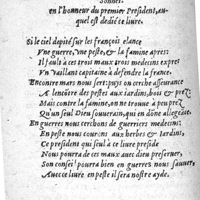 Sonnet
en l'honneur du premier President, au-
quel est dedié ce liure.
Si le ciel depité sur les françois elance
Vne guerre, vne peste, & la famine apres:
Il fault à ces trois maux trois medecins expres
Vn vaillant capitaine à defendre la france.
Encontre mars nous sert: puys on cerche asseurance
A la peste aux iardins, bois & prez
Mais contre la famine, on ne trouue à peu prez
Qu'un seul Dieu souuerain, qui en donne allegeance.
En guerres nous cerchons de guerriers medecins:
En peste nous courons aux herbes & iardins,
Ce president qui seul à ce liure preside
Nous pourra de ces maux auec dieu preseruer,
Son conseil pourra bien en guerres nous sauuer,
Auec ce liure en peste il sera nostre ayde.